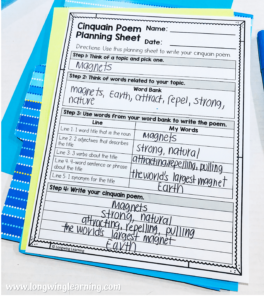 Cinquain Poem Name:
Planning Sheet Date:
Directions: Use this planning sheet to write your cinquain poem.
Step 1: Think of a topic and pick one.
Magnets
Step 2: Think of words related to your topic.
Word Bank
magnets, Earth, attract, repel, strong,
nature
Step 3: Use words from your word bank to write the poem.
Line My Words
Line 1: 1 word title that is the noun Magnets
Line 2: 2 adjectives that describe the title strong, natural
Line 3: 3 verbs about the title attracting, repelling, pulling
Line 4: 4 word sentence or phrase about the title the world's largest magnet
Line 5: 1 synonym for the title Earth
Step 4: Write your cinquain poem.
Magnets
strong, natural
attracting, repelling, pulling
the world's largest magnet
Earth
www.longwinglearning.com